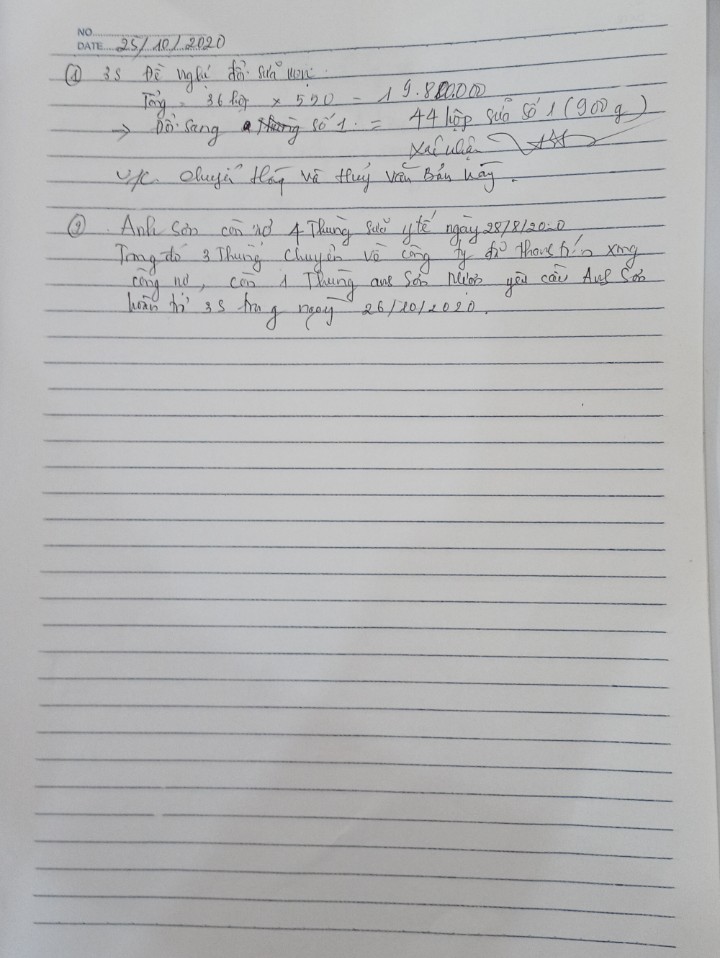 NO
DATE 25/10/2020
① 3S Đề nghị đổi sữa non.
Tổng = 36 hộp x 550 = 19.800.000
→ Đổi sang số 1. = 44 hộp sữa số 1 (900g)
Xác nhận
V/c chuyển Hồng và Thuỷ văn bản này.
② Anh Sơn còn nợ 4 Thùng sữa y tế ngày 28/8/2020
Trong đó 3 Thùng chuyển về công ty để thanh toán xong
công nợ, còn 1 Thùng anh Sơn mượn yêu cầu Anh Sơn
hoàn trả 3S trong ngày 26/10/2020.